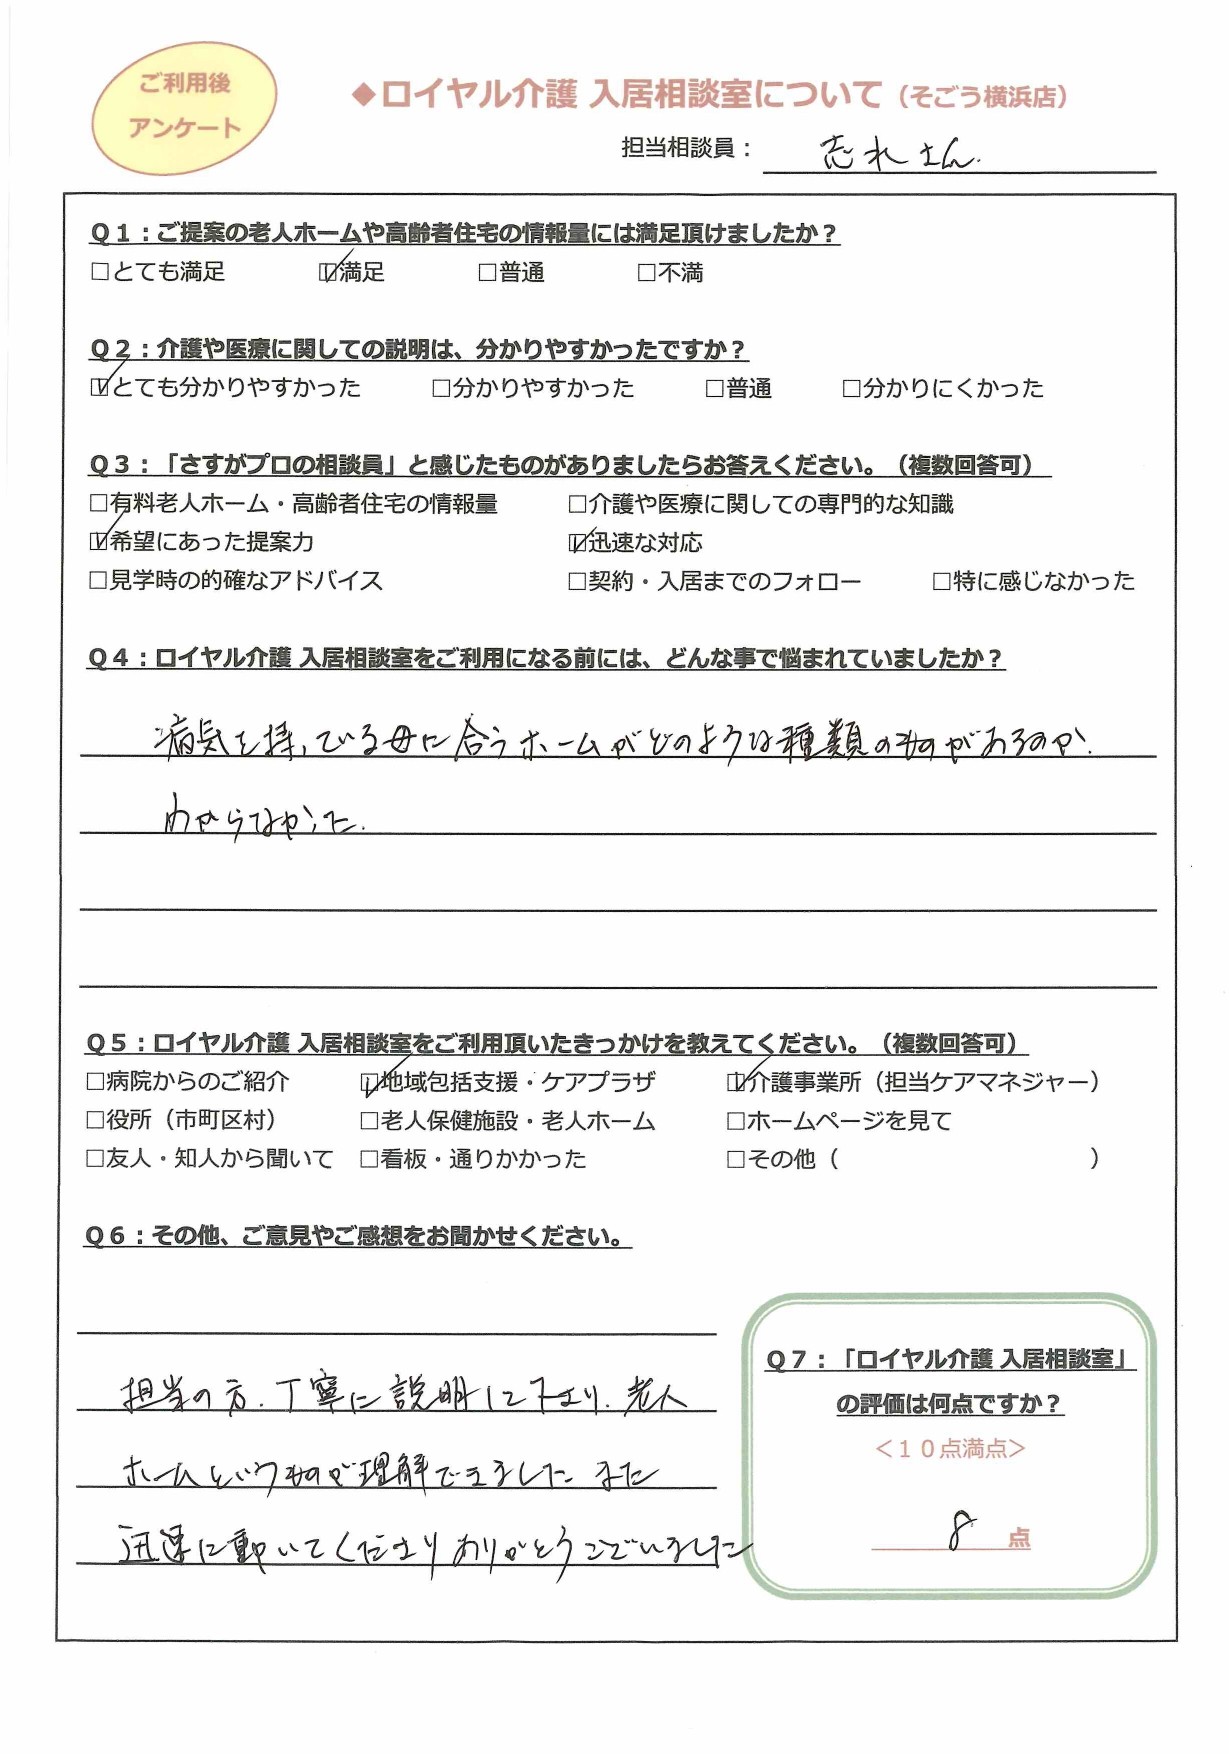 ご利用後
アンケート
◆ロイヤル介護 入居相談室について（そごう横浜店）
担当相談員： 志れさん.
Q1：ご提案の老人ホームや高齢者住宅の情報量には満足頂けましたか？
□とても満足 ☑満足 □普通 □不満
Q2：介護や医療に関しての説明は、分かりやすかったですか？
☑とても分かりやすかった □分かりやすかった □普通 □分かりにくかった
Q3：「さすがプロの相談員」と感じたものがありましたらお答えください。（複数回答可）
□有料老人ホーム・高齢者住宅の情報量 □介護や医療に関しての専門的な知識
☑希望にあった提案力 ☑迅速な対応
□見学時の的確なアドバイス □契約・入居までのフォロー □特に感じなかった
Q4：ロイヤル介護 入居相談室をご利用になる前には、どんな事で悩まれていましたか？
病気を持っている母に合うホームがどのような種類のものがあるのか.
わからなかった.
Q5：ロイヤル介護 入居相談室をご利用頂いたきっかけを教えてください。（複数回答可）
□病院からのご紹介 ☑地域包括支援・ケアプラザ ☑介護事業所（担当ケアマネジャー）
□役所（市町区村） □老人保健施設・老人ホーム □ホームページを見て
□友人・知人から聞いて □看板・通りかかった □その他（ ）
Q6：その他、ご意見やご感想をお聞かせください。
担当の方.丁寧に説明して下さり.老人
ホームというものが理解できました また
迅速に動いてくださりありがとうございました
Q7：「ロイヤル介護 入居相談室」
の評価は何点ですか？
＜１０点満点＞
8 点